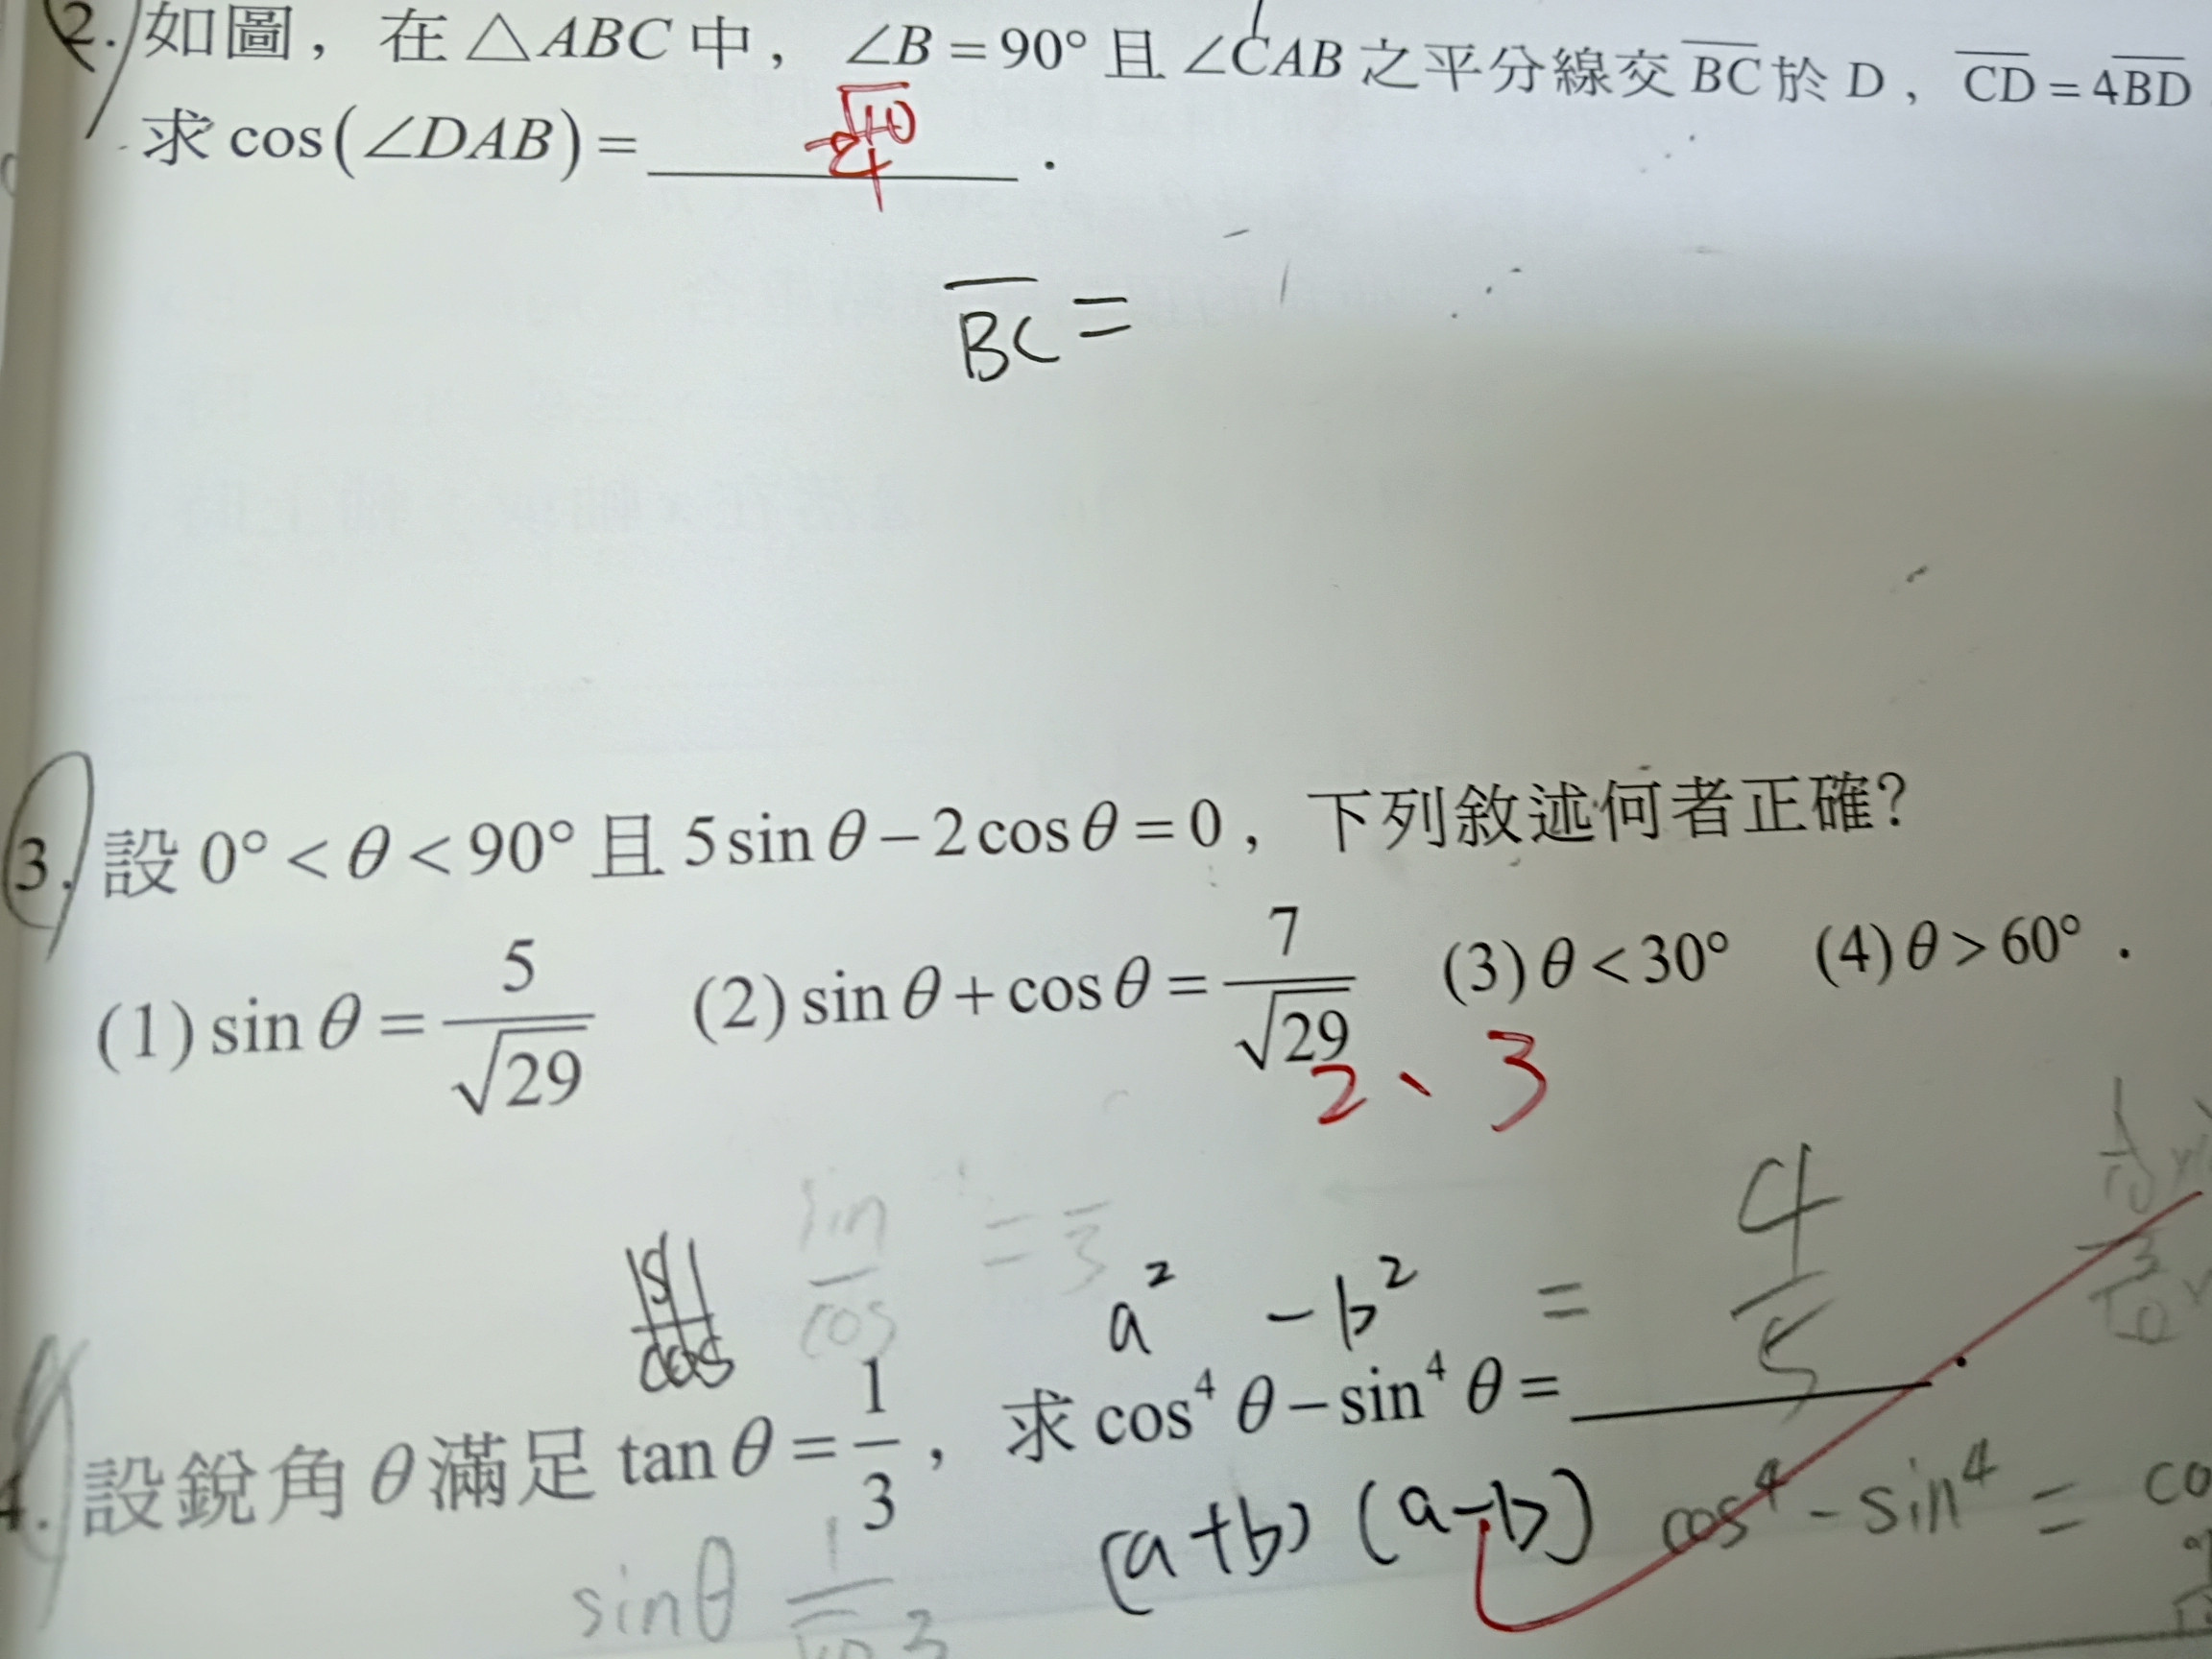 2. 如圖，在△ABC中，∠B=90°且∠CAB之平分線交BC於D，CD=4BD
求cos(∠DAB)= √10/4 .
BC =
3. 設0°<θ<90°且5sinθ−2cosθ=0，下列敘述何者正確?
(1) sinθ=5/√29 (2) sinθ+cosθ=7/√29 (3) θ<30° (4) θ>60° .
2、3
sin/cos = 1/3
a² − b² = 4/5
4. 設銳角θ滿足tanθ=1/3，求cos⁴θ−sin⁴θ= .
(a+b)(a−b) cos⁴ − sin⁴ = co
sinθ 1/√10 3